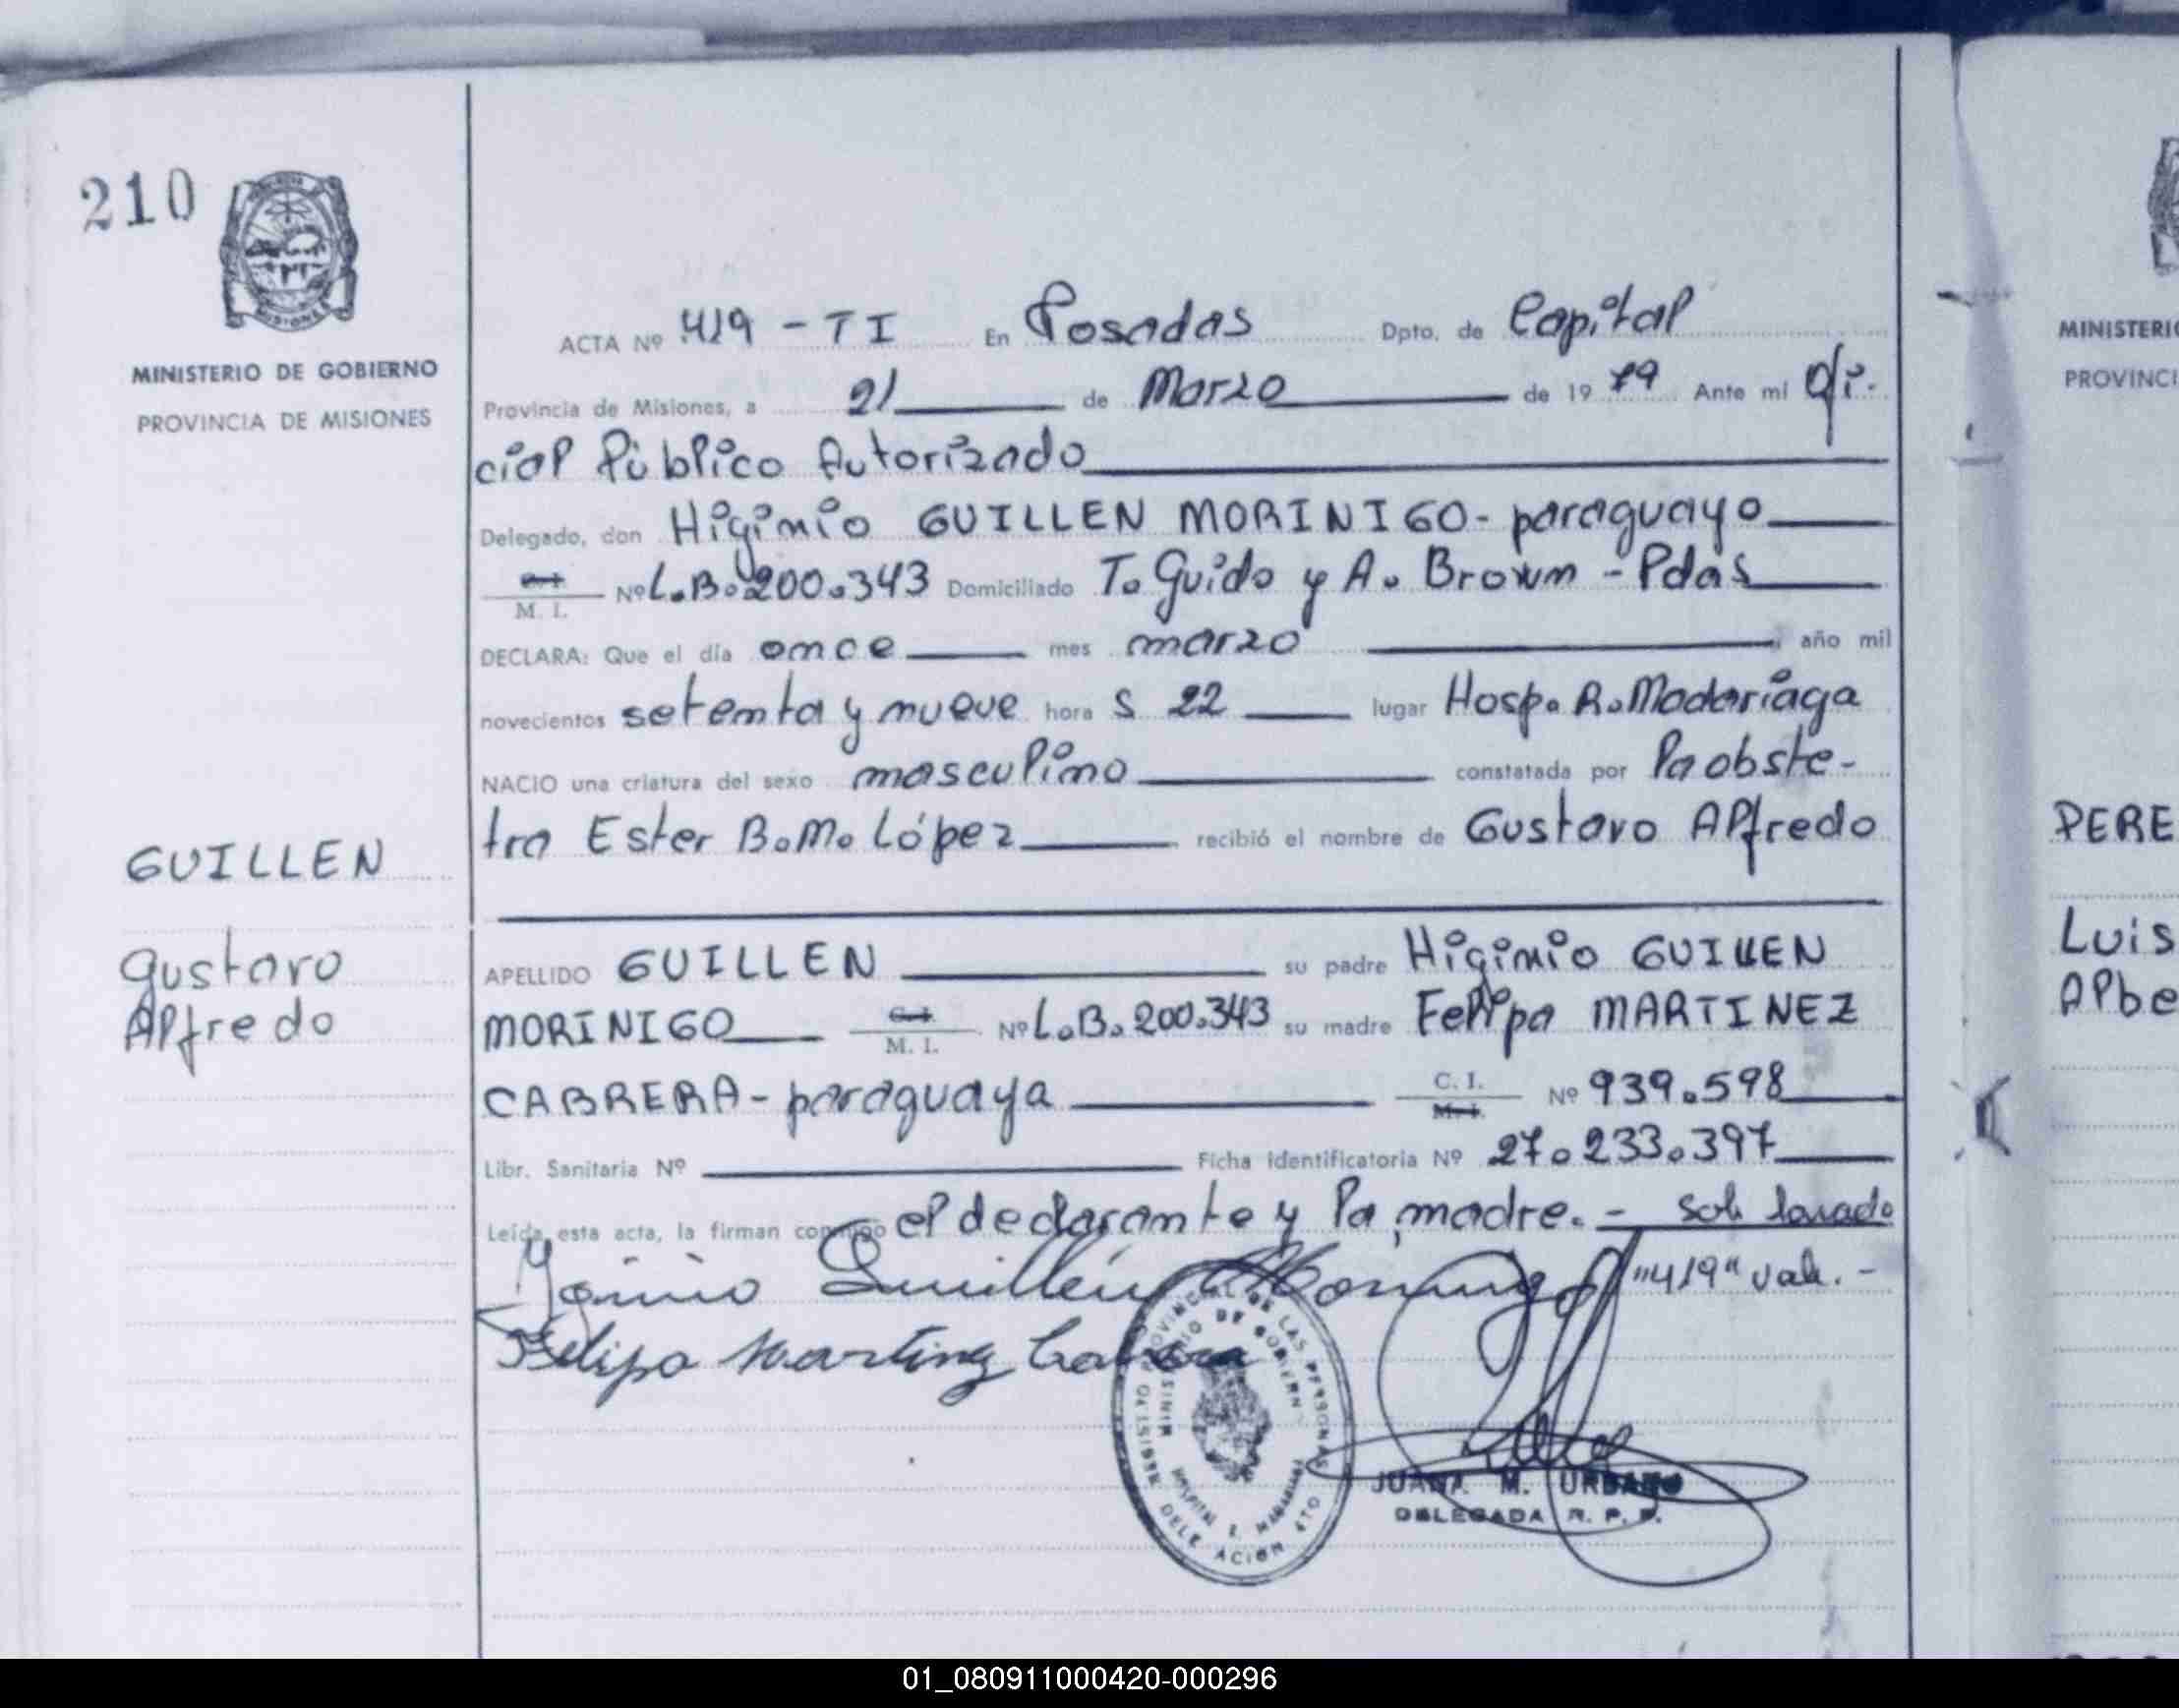 210
MINISTERIO DE GOBIERNO
PROVINCIA DE MISIONES
GUILLEN
Gustavo
Alfredo
ACTA Nº 419 - T I En Posadas Dpto. de Capital
Provincia de Misiones, a 21 de Marzo de 19 79 Ante mi Ofi-
cial Público Autorizado
Delegado, don Higinio GUILLEN MORINIGO - paraguayo
C.I. M. I. Nº L.B. 200.343 Domiciliado T. Guido y A. Brown - Pdas
DECLARA: Que el día once mes marzo, año mil
novecientos setenta y nueve hora s 22 lugar Hosp. R. Madariaga
NACIO una criatura del sexo masculino constatada por la obste-
tra Ester B. M. López recibió el nombre de Gustavo Alfredo
APELLIDO GUILLEN su padre Higinio GUILLEN
MORINIGO C.I. M. I. Nº L.B. 200.343 su madre Felipa MARTINEZ
CABRERA - paraguaya C. I. M. I. Nº 939.598
Libr. Sanitaria Nº Ficha Identificatoria Nº 27.233.397
Leída esta acta, la firman conmigo el declarante y la madre. - Sob lavado
"419" vale. -
Higinio Guillén Morinigo
Felipa Martinez Cabrera
JUANA M. URBANO
DELEGADA R. P. P.
MINISTERIO
PROVINCI
PERE
Luis
Albe
01_080911000420-000296